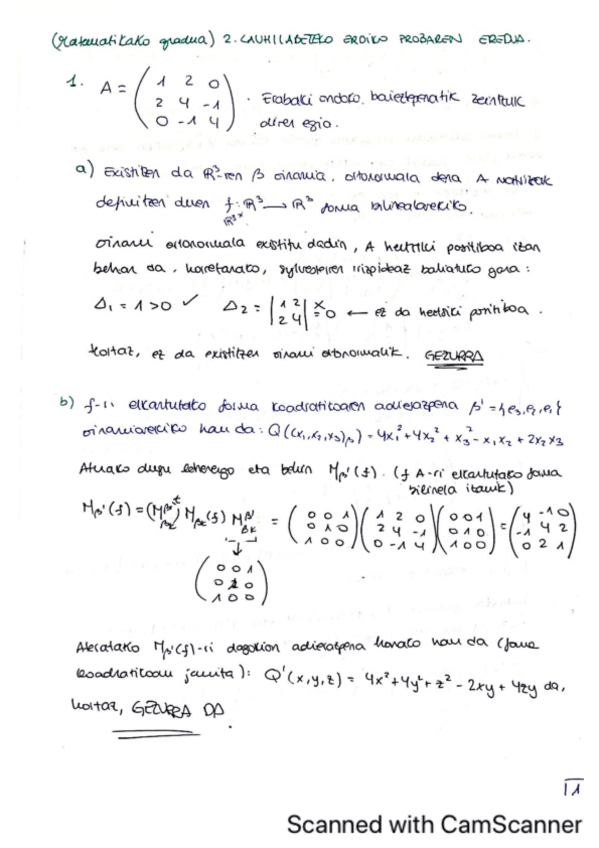 (Matematikako gradua) 2. LAUHILABETEKO ERDIKO PROBAREN EREDUA.
1. A = ( 1 2 0 ; 2 4 -1 ; 0 -1 4 ) . Erabaki ondoko baieztapenatik zeintzuk
diren egia.
a) Existitzen da ℝ³-ren β oinarria, ortonormala dena A matrizeak
definitzen duen f: ℝ³ → ℝ³ forma bilinealarekiko.
ℝ³ˣ
oinarri ortonormala existitu dadin, A hertsiki positiboa izan
behar da, horretarako, sylvesterren irizpideaz baliatuko gara:
Δ₁ = 1 > 0 ✓ Δ₂ = | 1 2 ; 2 4 | = 0 ✗ ← ez da hertsiki positiboa.
Hortaz, ez da existitzen oinarri ortonormalik. GEZURRA
b) f-ri elkartutako forma koadratikoaren adierazpena β' = {e₃, e₂, e₁}
oinarriarekiko hau da: Q((x₁, x₂, x₃)β) = 4x₁² + 4x₂² + x₃² - x₁x₂ + 2x₂x₃
Atarako dugu lehenengo eta behin Mβ'(f). (f A-ri elkartutako forma
bilineala izanik)
Mβ'(f) = (M )ᵗ M (f) M = ( 0 0 1 ; 0 1 0 ; 1 0 0 ) ( 1 2 0 ; 2 4 -1 ; 0 -1 4 ) ( 0 0 1 ; 0 1 0 ; 1 0 0 ) = ( 4 -1 0 ; -1 4 2 ; 0 2 1 )
↓
( 0 0 1 ; 0 1 0 ; 1 0 0 )
Ateratako Mβ'(f)-ri dagokion adierazpena honako hau da (forma
koadratikoan jarrita): Q'(x,y,z) = 4x² + 4y² + z² - 2xy + 4zy da,
hortaz, GEZURRA DA
11
Scanned with CamScanner